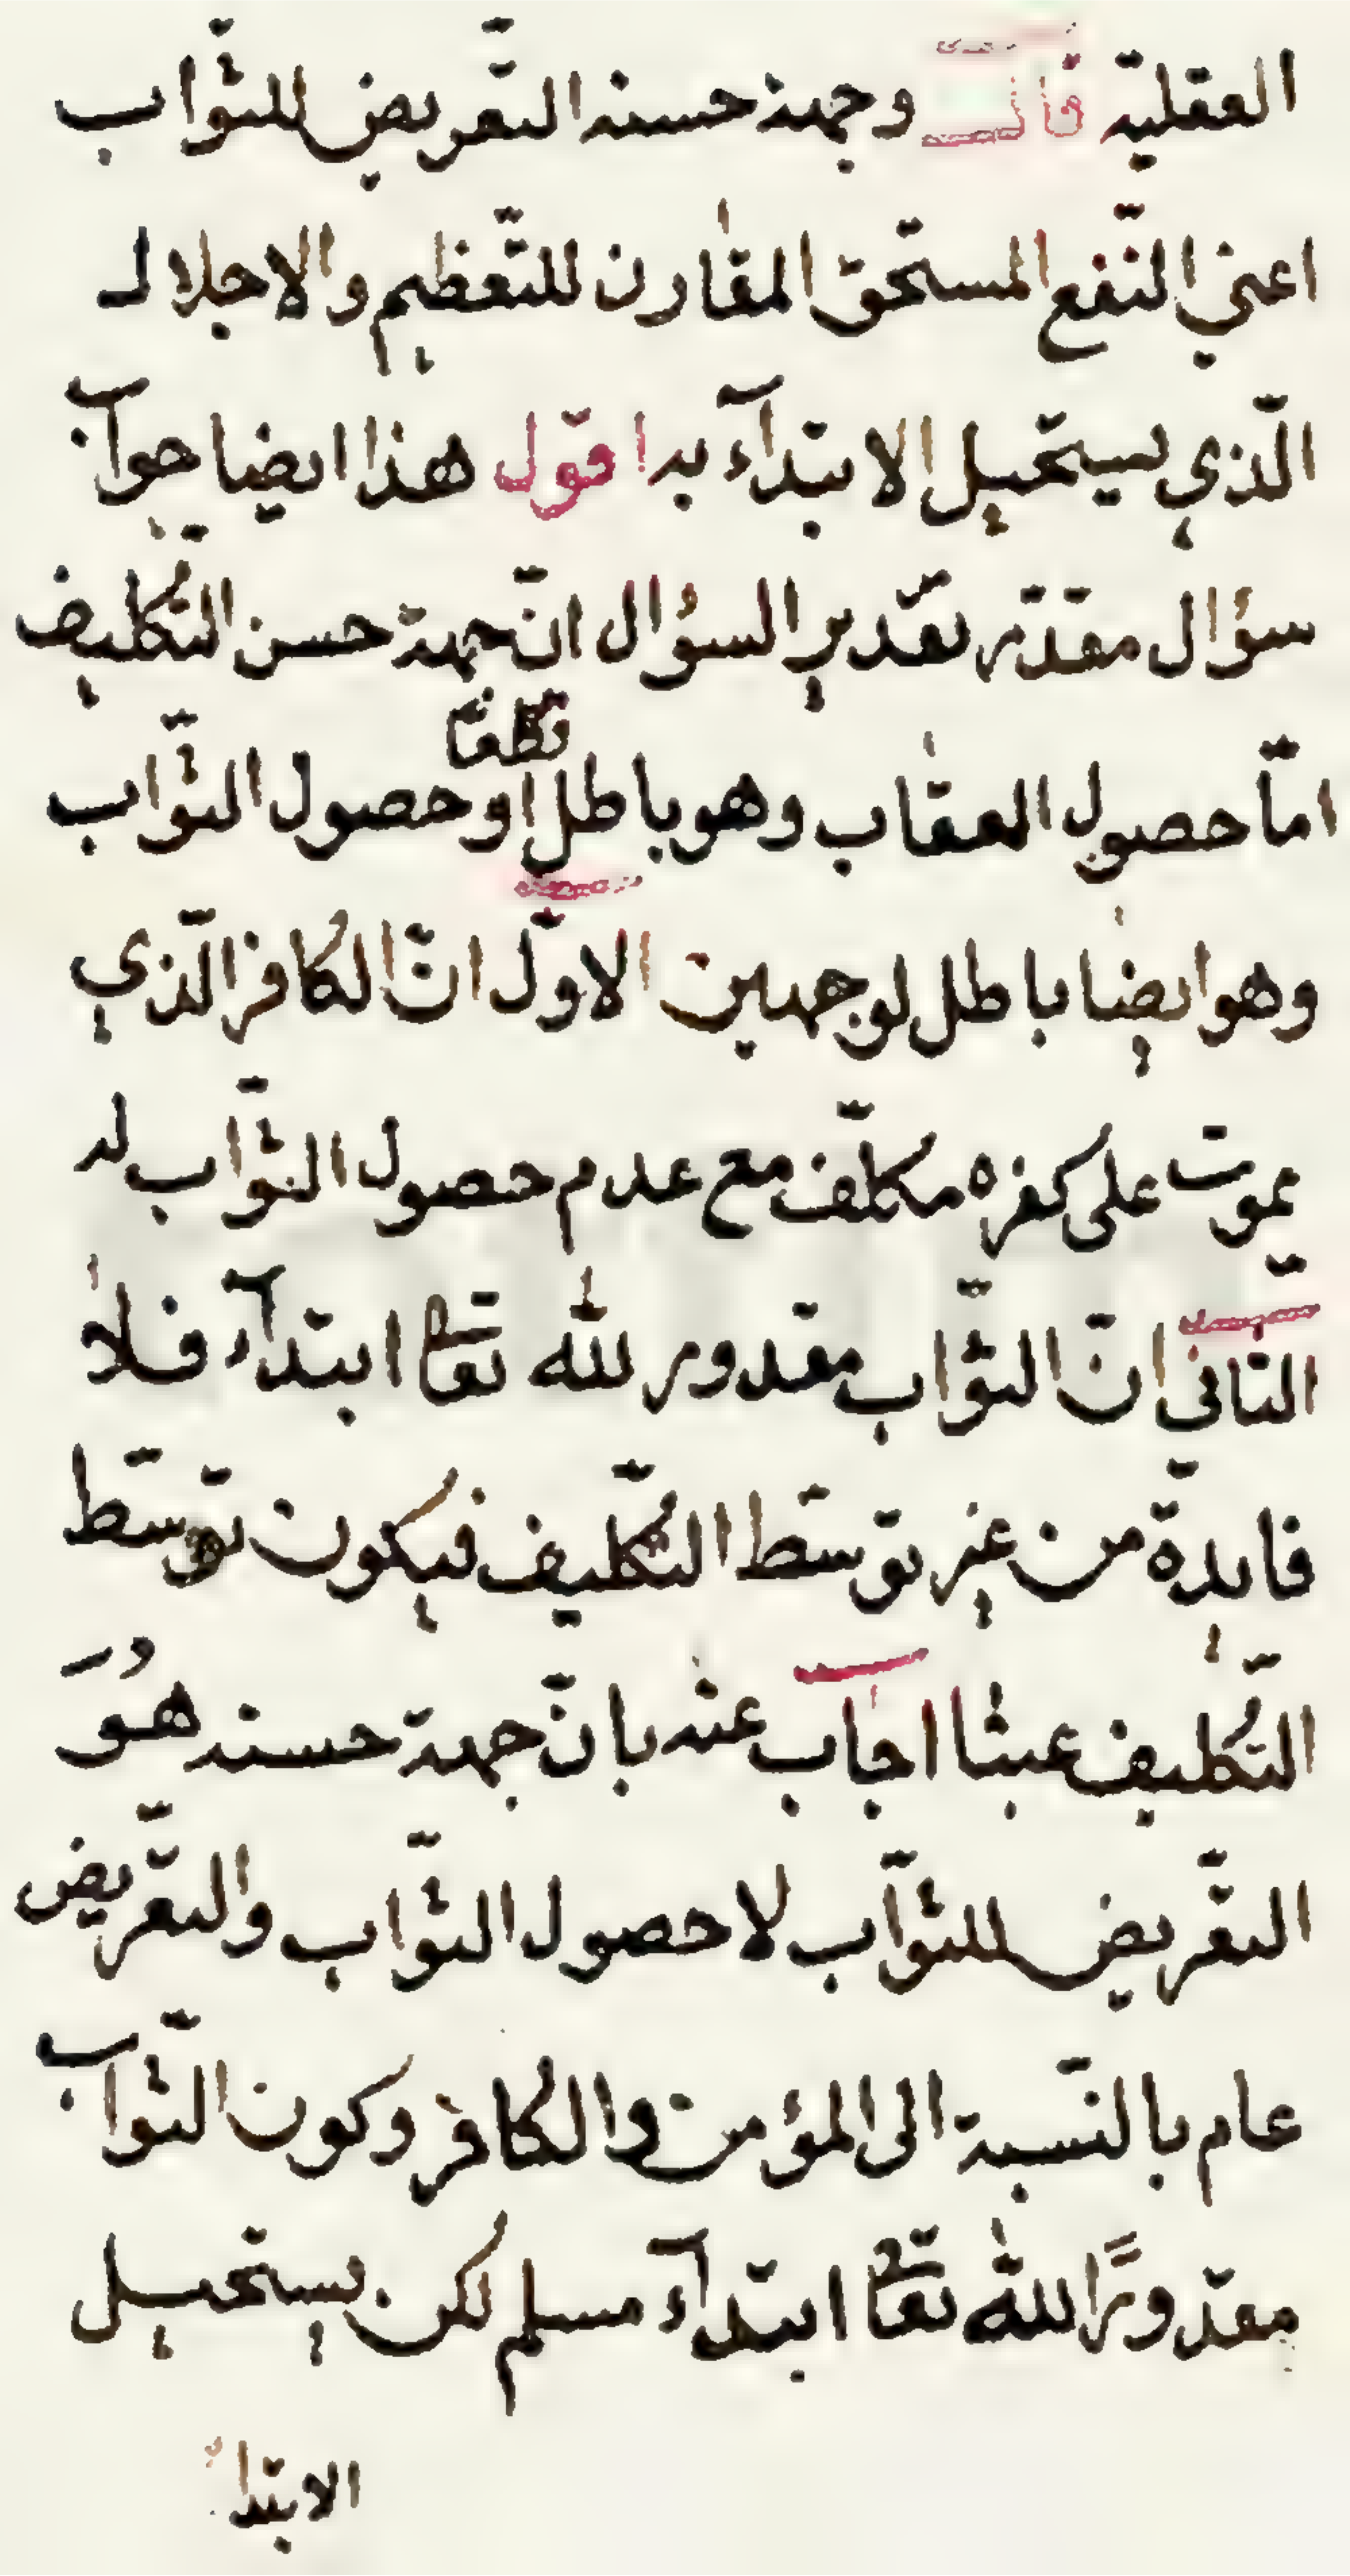 العقلية قال وجهة حسنه التعريض للثواب
اعني النفع المستحق المقارن للتعظيم والاجلال
الّذي يستحيل الابتدآء به اقول هذا ايضا جواب
سؤال مقدّر تقدير السؤال انّ جهة حسن التكليف
امّا حصول العقاب وهو باطل قطعًا او حصول الثّواب
وهو ايضا باطل لوجهين الاوّل انّ الكافر الّذي
يموت على كفره مكلّف مع عدم حصول الثّواب له
الثاني انّ الثّواب مقدور لله تعا ابتدآء فلا
فايدة من غير توسّط التّكليف فيكون توسّط
التّكليف عبثا اجاب عنه بانّ جهة حسنه هُوَ
التّعريض للثّوآب لا حصول الثّواب والتّعريض
عام بالنّسبة الى المؤمن والكافر وكون الثّواب
مقدورًا لله تعا ابتدآء مسلم لكن يستحيل
الابتدا